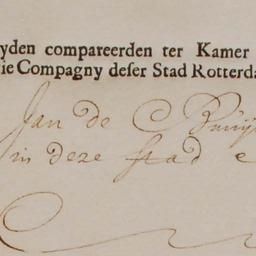 yden compareerden ter Kamer
ie Compagny deser Stad Rotterda
Jan de Bruij
in deze stad e